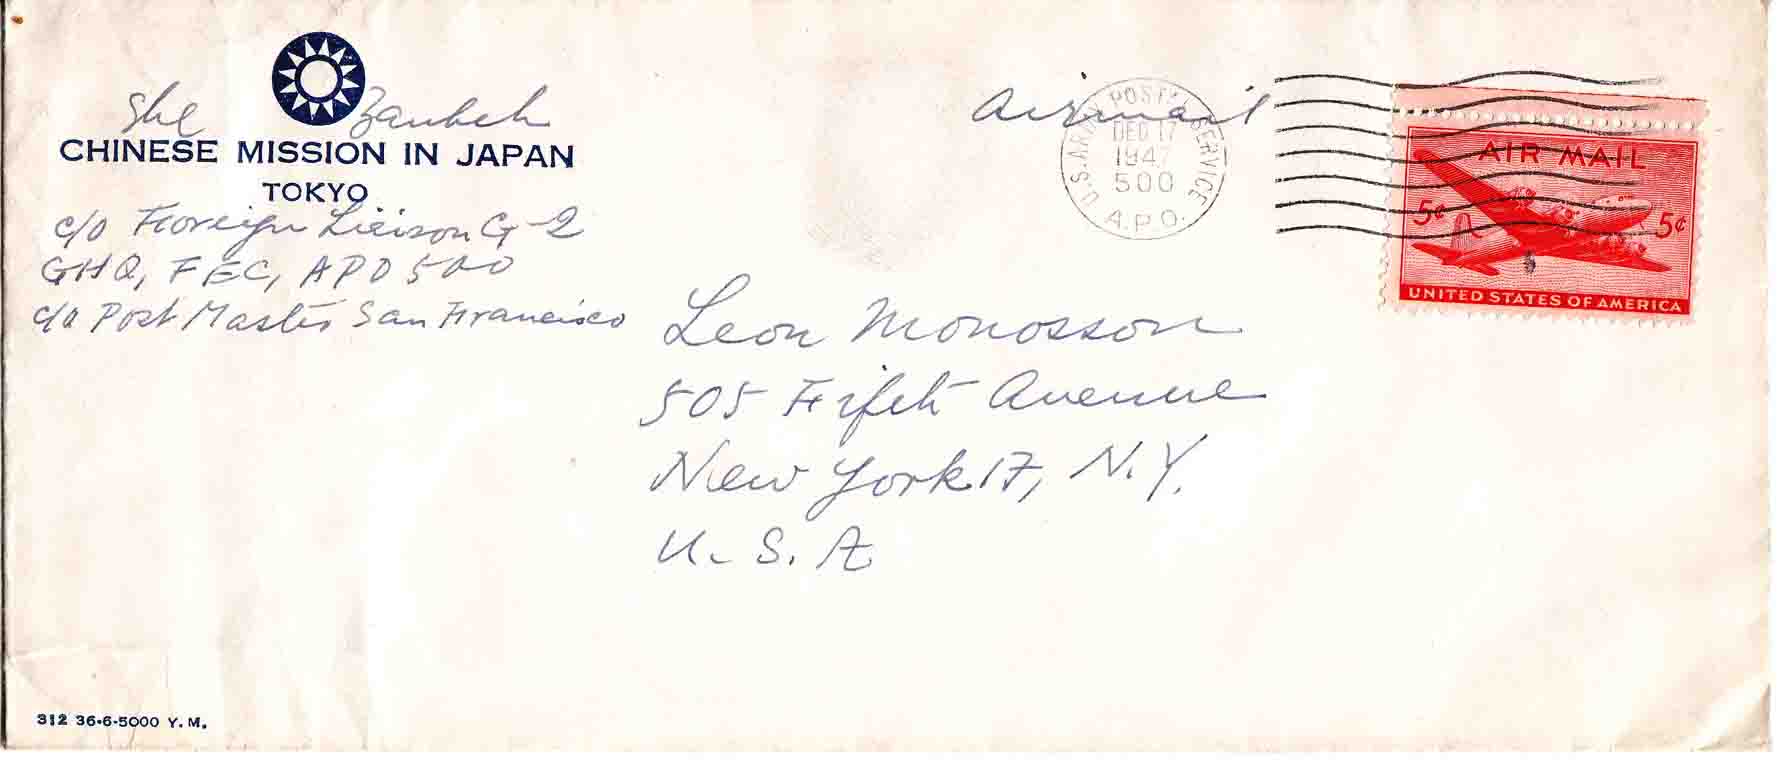 She Zanbeh
CHINESE MISSION IN JAPAN
TOKYO
c/o Foreign Liaison G-2
GHQ, FEC, APO 500
c/o Post Master San Francisco
Airmail
U.S. ARMY POSTAL SERVICE
DEC 17
1947
500
A.P.O.
AIR MAIL
5¢ 5¢
UNITED STATES OF AMERICA
Leon Monosson
505 Fifth Avenue
New York 17, N.Y.
U.S.A
312 36-6-5000 Y. M.